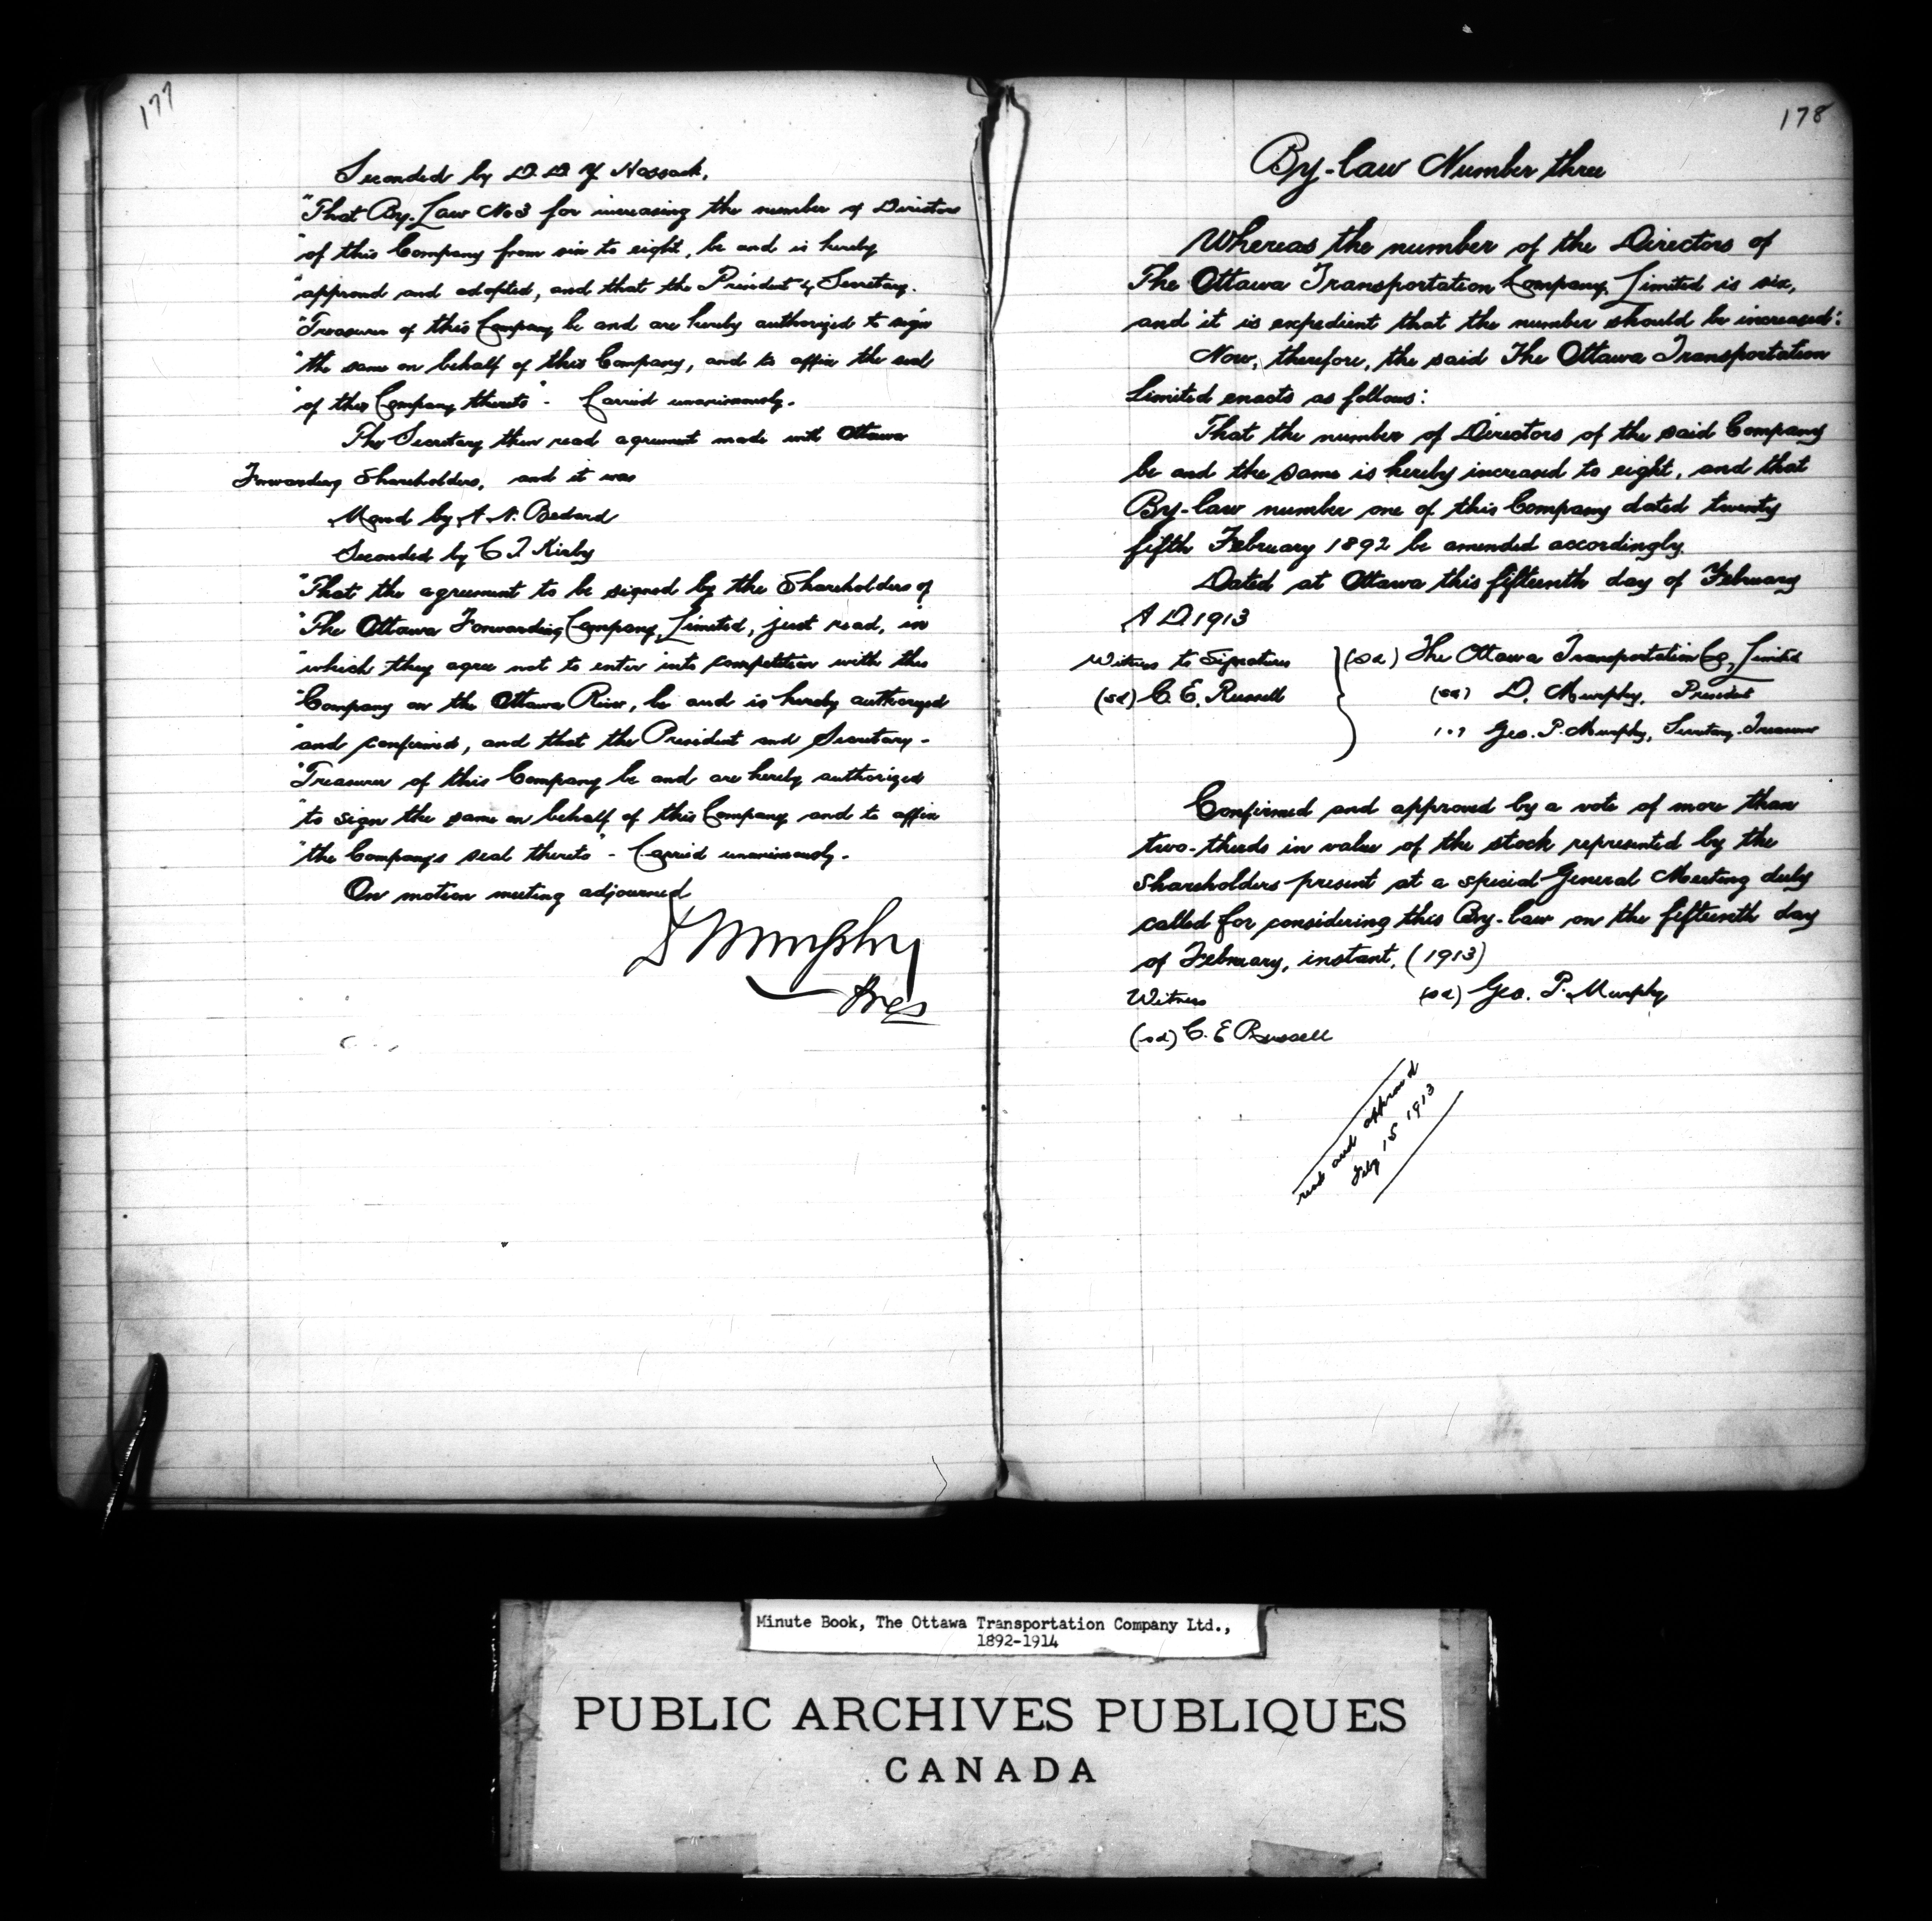 177
Seconded by D. D. Y Hossack,
"That By-Law No 3 for increasing the number of Directors
"of this Company from six to eight, be and is hereby
"approved and adopted, and that the President & Secretary-
"Treasurer of this Company be and are hereby authorized to sign
"the same on behalf of this Company, and to affix the seal
"of this Company thereto" - Carried unanimously.
The Secretary then read agreement made with Ottawa
Forwarding Shareholders, and it was
Moved by A. N. Bedard
Seconded by C J Kirby
"That the agreement to be signed by the Shareholders of
"The Ottawa Forwarding Company, Limited, just read, in
"which they agree not to enter into competition with this
"Company on the Ottawa River, be and is hereby authorized
"and confirmed, and that the President and Secretary-
"Treasurer of this Company be and are hereby authorized
"to sign the same on behalf of this Company and to affix
"the Company's seal thereto" - Carried unanimously.
On motion meeting adjourned
D Murphy
Pres
178
By-law Number three
Whereas the number of the Directors of
The Ottawa Transportation Company, Limited is six,
and it is expedient that the number should be increased:
Now, therefore, the said The Ottawa Transportation
Limited enacts as follows:
That the number of Directors of the said Company
be and the same is hereby increased to eight, and that
By-law number one of this Company dated twenty
fifth February 1892 be amended accordingly.
Dated at Ottawa this fifteenth day of February
A D. 1913
Witness to Signatures (sd) The Ottawa Transportation Co, Limited
(sd) C. E. Russell (sd) D. Murphy, President
" Geo. P. Murphy, Secretary-Treasurer
Confirmed and approved by a vote of more than
two-thirds in value of the stock represented by the
shareholders present at a special General Meeting duly
called for considering this By-law on the fifteenth day
of February, instant, (1913)
Witness (sd) Geo. P. Murphy
(sd) C. E Russell
read and approved
Feby 15 1913
Minute Book, The Ottawa Transportation Company Ltd.,
1892-1914
PUBLIC ARCHIVES PUBLIQUES
CANADA